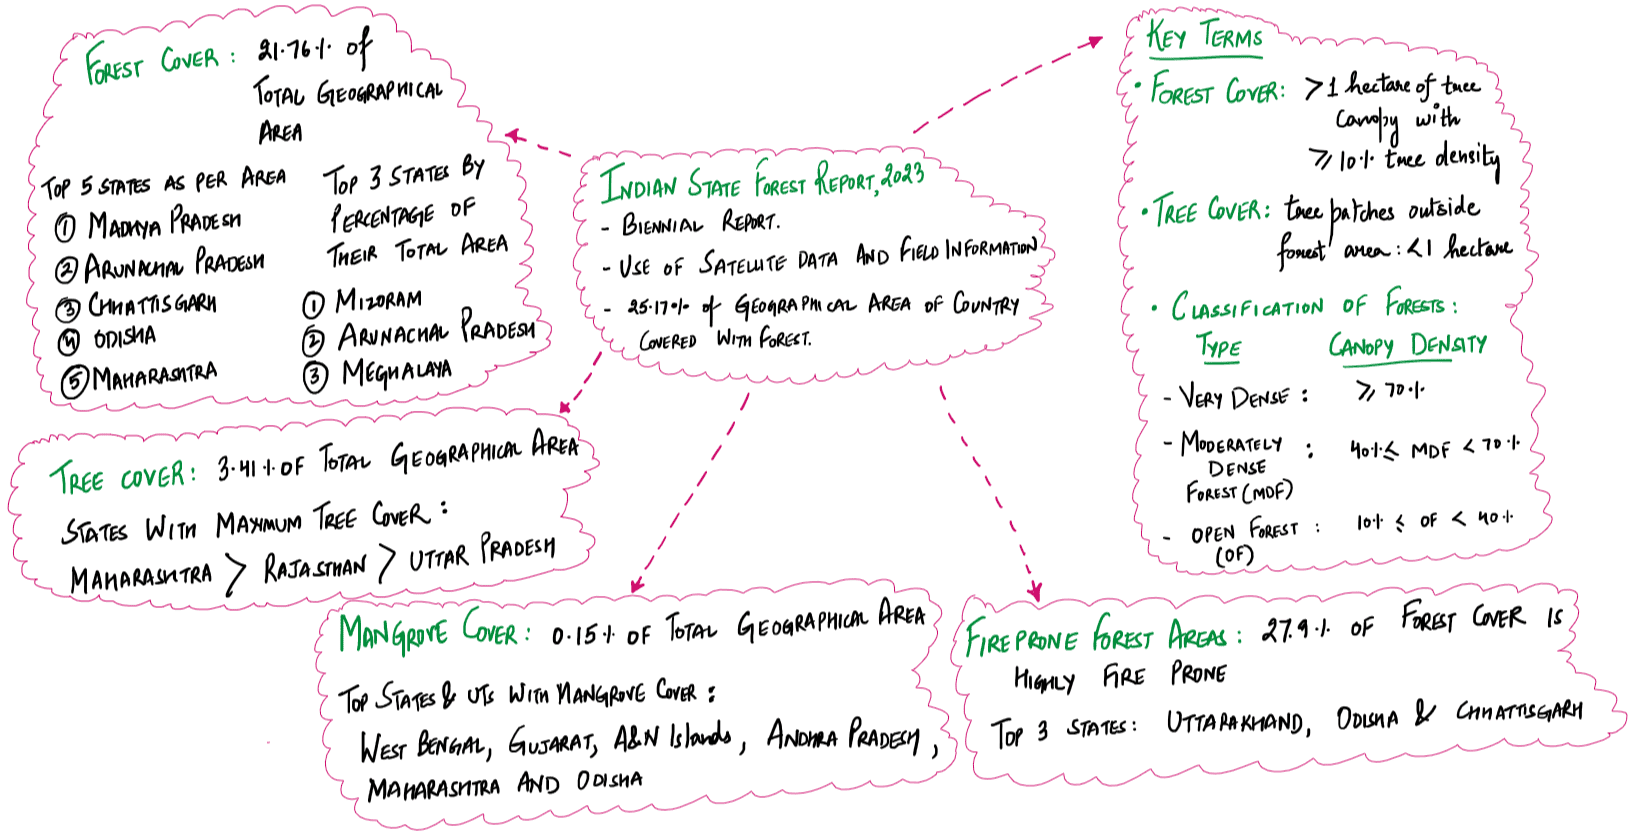 INDIAN STATE FOREST REPORT, 2023
- BIENNIAL REPORT.
- USE OF SATELLITE DATA AND FIELD INFORMATION
- 25.17% of GEOGRAPHICAL AREA OF COUNTRY
COVERED WITH FOREST.
FOREST COVER: 21.76% of
TOTAL GEOGRAPHICAL
AREA
TOP 5 STATES AS PER AREA
① MADHYA PRADESH
② ARUNACHAL PRADESH
③ CHHATTISGARH
④ ODISHA
⑤ MAHARASHTRA
TOP 3 STATES BY
PERCENTAGE OF
THEIR TOTAL AREA
① MIZORAM
② ARUNACHAL PRADESH
③ MEGHALAYA
TREE COVER: 3.41% OF TOTAL GEOGRAPHICAL AREA
STATES WITH MAXIMUM TREE COVER:
MAHARASHTRA > RAJASTHAN > UTTAR PRADESH
MANGROVE COVER: 0.15% OF TOTAL GEOGRAPHICAL AREA
TOP STATES & UTs WITH MANGROVE COVER:
WEST BENGAL, GUJARAT, A&N Islands, ANDHRA PRADESH,
MAHARASHTRA AND ODISHA
FIRE PRONE FOREST AREAS: 27.9% OF FOREST COVER IS
HIGHLY FIRE PRONE
TOP 3 STATES: UTTARAKHAND, ODISHA & CHHATTISGARH
KEY TERMS
• FOREST COVER: >1 hectare of tree
canopy with
≥10% tree density
• TREE COVER: tree patches outside
forest area: <1 hectare
• CLASSIFICATION OF FORESTS:
TYPE CANOPY DENSITY
- VERY DENSE: ≥ 70%
- MODERATELY
DENSE : 40% ≤ MDF < 70%
FOREST (MDF)
- OPEN FOREST : 10% ≤ OF < 40%
(OF)